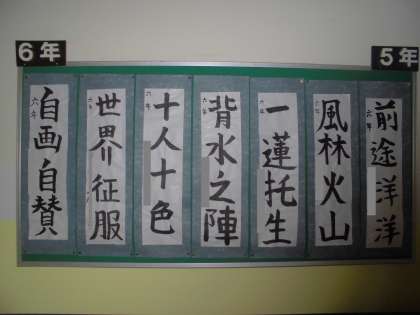 6年
5年
前途洋洋
六年
風林火山
六年
一蓮托生
六年
背水之陣
六年
十人十色
六年
世界征服
六年
自画自賛
六年